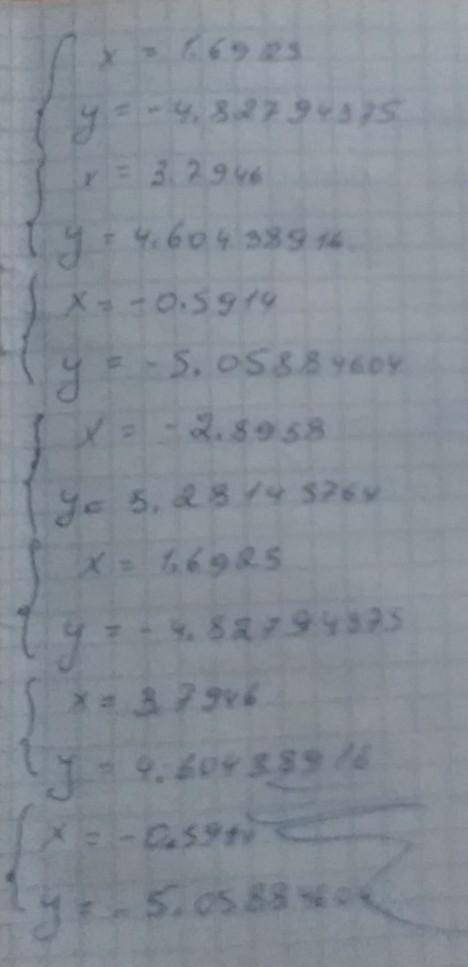 x = 1.6925
y = -4.82794375
x = 3.7946
y = 4.60438916
x = -0.5914
y = -5.05884604
x = -2.8958
y = 5.28143764
x = 1.6925
y = -4.82794375
x = 3.7946
y = 4.60438916
x = -0.5914
y = -5.05884604